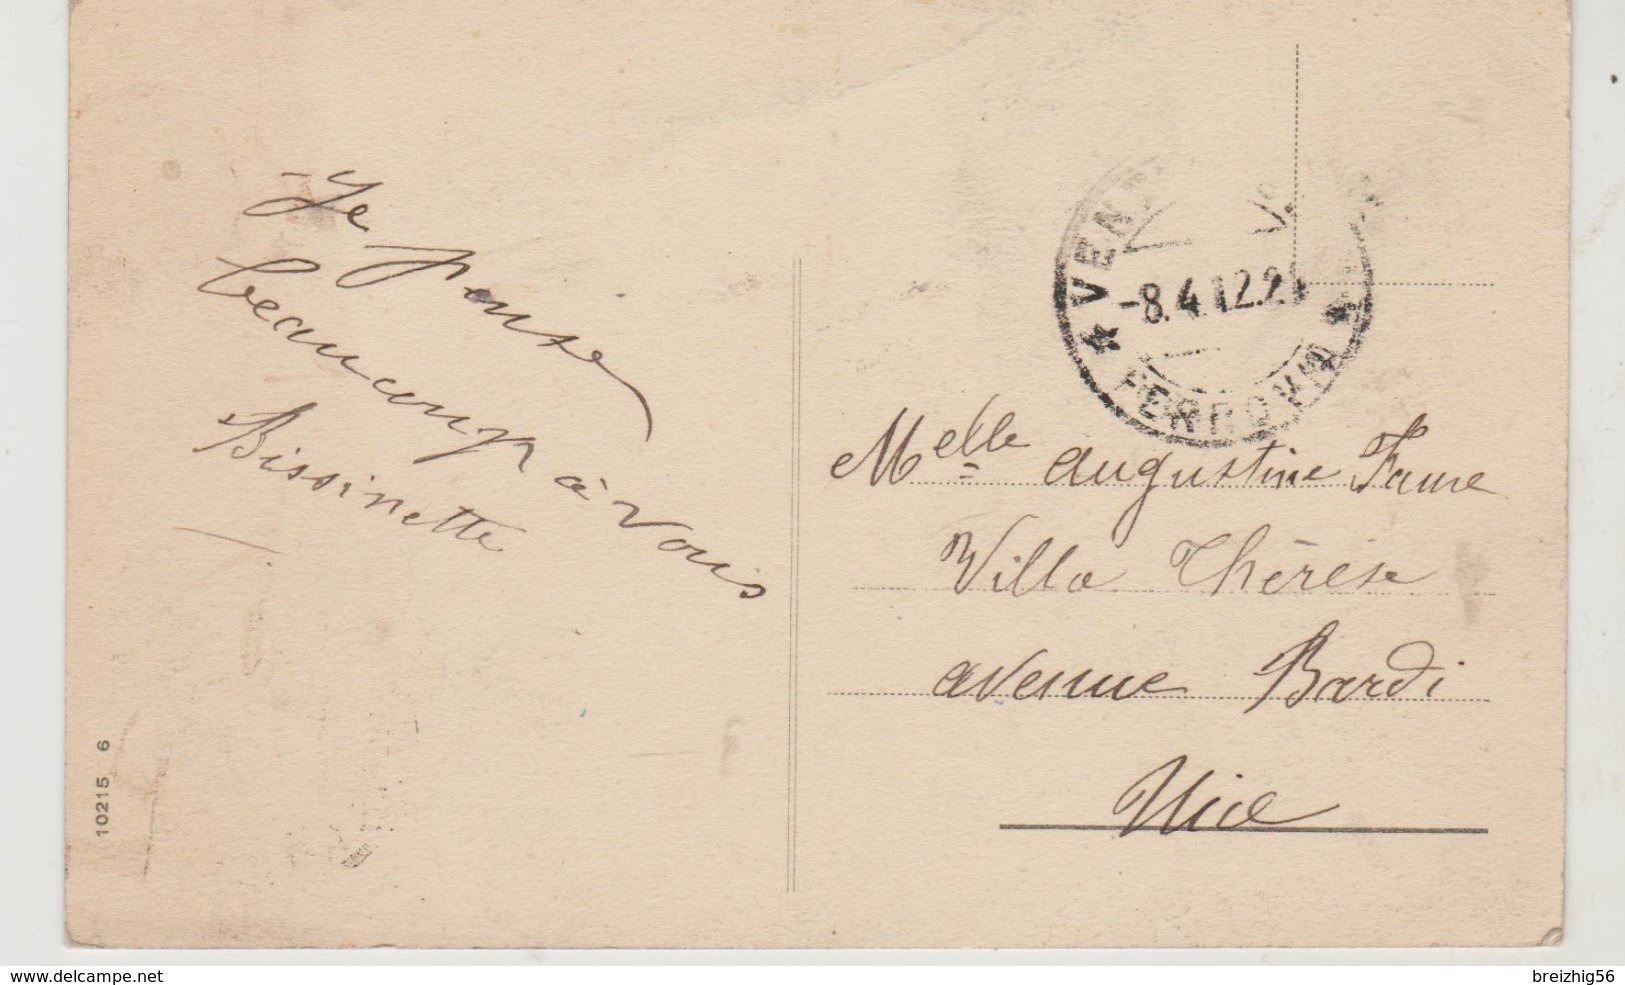 Je pense
beaucoup à vous
Bissinette
10215 6
VEN
-8.4.12.2
* FERROVIA *
Melle augustine Faure
Villa Thérèse
avenue Bardi
Nice
www.delcampe.net
breizhig56